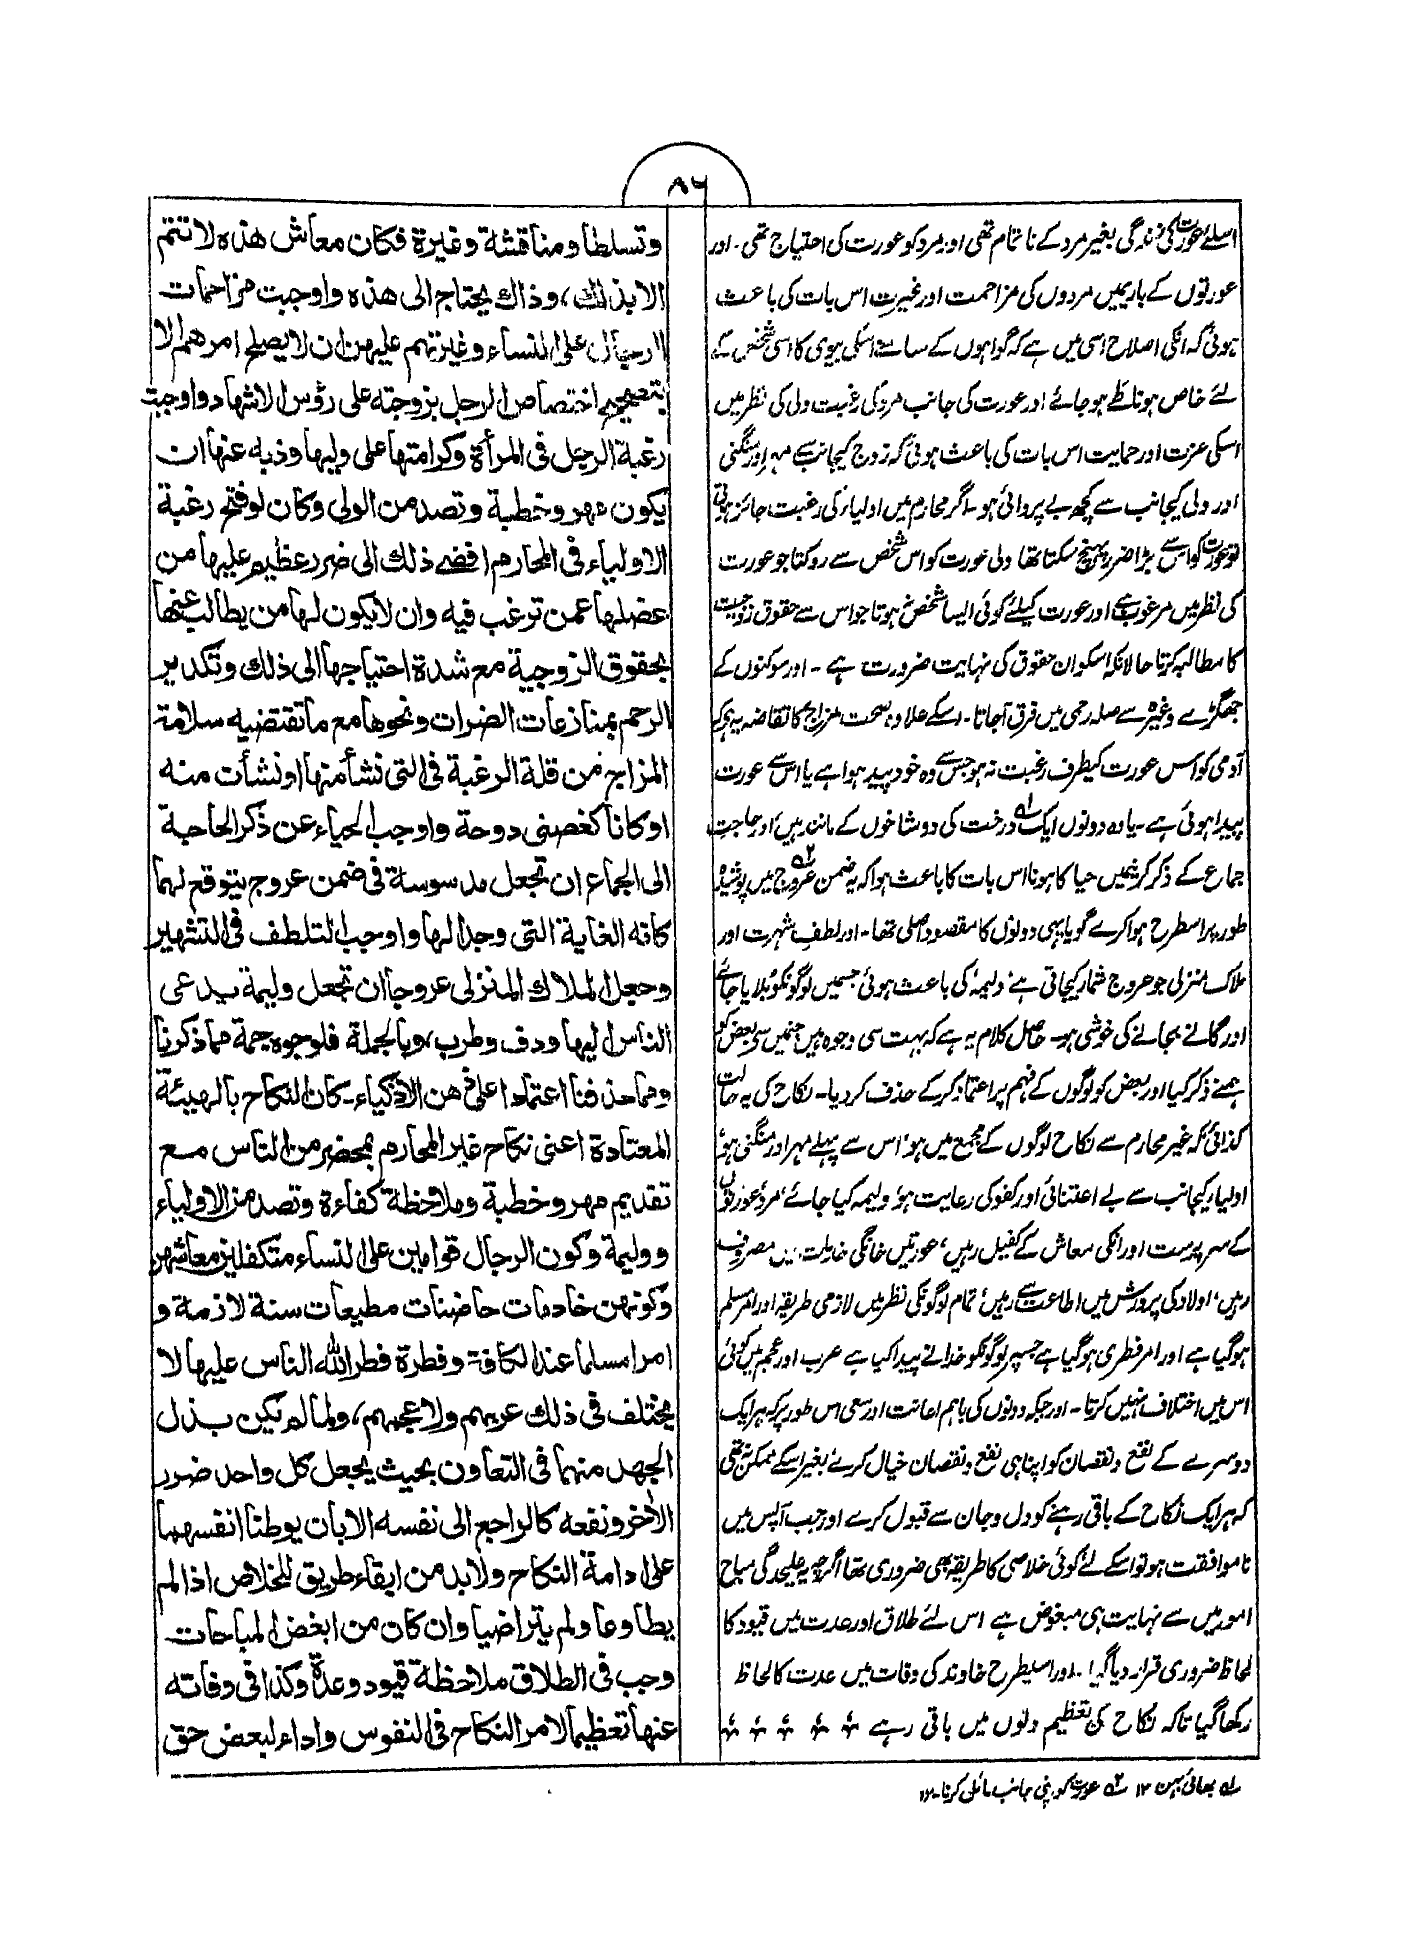 ٨٦
اسلئے عورت کی زندگی بغیر مرد کے ناتمام تھی اور مرد کو عورت کی احتیاج تھی۔ اور
عورتوں کے بارہمیں مردوں کی مزاحمت اور غیرت اس بات کی باعث
ہوئی کہ انکی اصلاح اسی میں ہے کہ گواہوں کے سامنے اسکی بیوی کا اسی شخص کے
لئے خاص ہونا ظاہر ہوجائے اور عورت کی جانب مرد کی رغبت ولی کی نظر میں
اسکی عزت اور حمایت اس بات کی باعث ہوئی کہ زوج کیجانب سے مہر اور منگنی
اور ولی کیجانب سے کچھ بے پروائی ہو۔ اگر محارم میں اولیاء کی رغبت جائز ہوتی
تو عورت کو اس سے بڑا ضرر پہنچ سکتا تھا ولی عورت کو اس شخص سے روکتا جو عورت
کی نظر میں مرغوب ہے اور عورت کیلئے کوئی ایسا شخص نہ ہوتا جو اس سے حقوق زوجیت
کا مطالبہ کرتا حالانکہ اسکو ان حقوق کی نہایت ضرورت ہے ۔ اور سوکنوں کے
جھگڑے وغیرہ سے صلہ رحمی میں فرق آجاتا۔ اسکے علاوہ صحت مزاج کا تقاضہ یہ ہے کہ
آدمی کو اس عورت کیطرف رغبت نہ ہو جس سے وہ خود پیدا ہوا ہے یا اس سے عورت
پیدا ہوئی ہے۔ یا وہ دونوں ایک لہ درخت کی دو شاخوں کے مانند ہیں، اور حاجت
جماع کے ذکر کرنیمیں حیا کا ہونا اس بات کا باعث ہوا کہ یہ ضمن عروج ٢ه میں پوشیدہ
طور پر اسطرح ہوا کرے گویا یہی دونوں کا مقصود اصلی تھا۔ اور لطف شہرت اور
ملاک منزلی جو عروج شمار کیجاتی ہے ولیمہ کی باعث ہوئی جسمیں لوگونکو بلایا جائے
اور گانے بجانے کی خوشی ہو۔ حاصل کلام یہ ہے کہ بہت سی وجوہ ہیں جنمیں سے بعض کو
ہمنے ذکر کیا اور بعض کو لوگوں کے فہم پر اعتماد کرکے حذف کردیا۔ نکاح کی یہ حالت
کذائی کہ غیر محارم سے نکاح لوگوں کے مجمع میں ہو، اس سے پہلے مہر اور منگنی ہو
اولیاء کیجانب سے بے اعتنائی اور کفو کی رعایت ہو، ولیمہ کیا جائے، مرد عورتوں
کے سرپرست اور انکی معاش کے کفیل رہیں، عورتیں خانگی خدمات میں مصروف
رہیں، اولاد کی پرورش میں اطاعت سے رہیں، تمام لوگونکی نظر میں لازمی طریقہ اور امر مسلم
ہوگیا ہے اور امر فطری ہوگیا ہے جسپر لوگونکو خدا نے پیدا کیا ہے عرب اور عجم میں کوئی
اس میں اختلاف نہیں کرتا۔ اور جبکہ دونوں کی باہم اعانت اور سعی اس طور پر کہ ہر ایک
دوسرے کے نفع و نقصان کو اپنا ہی نفع و نقصان خیال کرے بغیر اسکے ممکن نہ تھی
کہ ہر ایک نکاح کے باقی رہنے کو دل وجان سے قبول کرے اور جب آپس میں
ناموافقت ہو تو اسکے لئے کوئی خلاصی کا طریقہ بھی ضروری تھا اگرچہ یہ علیحدگی مباح
امور میں سے نہایت ہی مبغوض ہے اس لئے طلاق اور عدت میں قیود کا
لحاظ ضروری قرار دیا گیا۔ اور اسیطرح خاوند کی وفات میں عدت کا لحاظ
رکھا گیا تاکہ نکاح کی تعظیم دلوں میں باقی رہے
وتسلطا ومناقشة وغيرة فكان معاش هذه لا تتم
الا بذلك، وذاك يحتاج الى هذه واوجبت مزاحمات
الرجال على النساء وغيرتهم عليهن ان لا يصلح امرهم الا
بتصحيح اختصاص الرجل بزوجته على رؤس الاشهاد واوجبت
رغبة الرجل في المرأة وكرامتها على وليها وذبه عنها ان
يكون مهر وخطبة وتصد من الولي وكان لو فتح رغبة
الاولياء في المحارم افضى ذلك الى ضرر عظيم عليها من
عضلها عمن ترغب فيه وان لا يكون لها من يطالب عنها
بحقوق الزوجية مع شدة احتياجها الى ذلك وتكدير
الرحم بمنازعات الضرات ونحوها مع ما تقتضيه سلامة
المزاج من قلة الرغبة في التي نشأ منها او نشأت منه
او كانا كغصني دوحة واوجب الحياء عن ذكر الحاجة
الى الجماع ان تجعل مدسوسة في ضمن عروج يتوقع لهما
كانه الغاية التي وجدا لها واوجب التلطف في التشهير
وجعل الملاك المنزلي عروجا ان تجعل وليمة يدعى
الناس اليها ودف وطرب، وبالجملة فلوجوه جمة مما ذكرنا
ومما حذفنا اعتمادا على ذهن الاذكياء۔ كان النكاح بالهيئة
المعتادة اعنى نكاح غير المحارم بمحضر من الناس مع
تقديم مهر وخطبة وملاحظة كفاءة وتصد من الاولياء
ووليمة وكون الرجال قوامين على النساء متكفلين معاشهن
وكونهن خادمات حاضنات مطيعات سنة لازمة و
امرا مسلما عند الكافة وفطرة فطر الله الناس عليها لا
يختلف في ذلك عربهم ولا عجمهم، ولما لم يكن بذل
الجهد منهما في التعاون بحيث يجعل كل واحد ضرر
الاخر ونفعه كالراجع الى نفسه الا بان يوطنا انفسهما
على ادامة النكاح ولا بد من ابقاء طريق للخلاص اذا لم
يطاوعا ولم يتراضيا وان كان من ابغض المباحات
وجب في الطلاق ملاحظة قيود وعدة وكذا في وفاته
عنها تعظيما لامر النكاح في النفوس واداء لبعض حق
لہ بھائی بہن ١٢ ٢ه عورت کو اپنی جانب مائل کرنا۔١٢